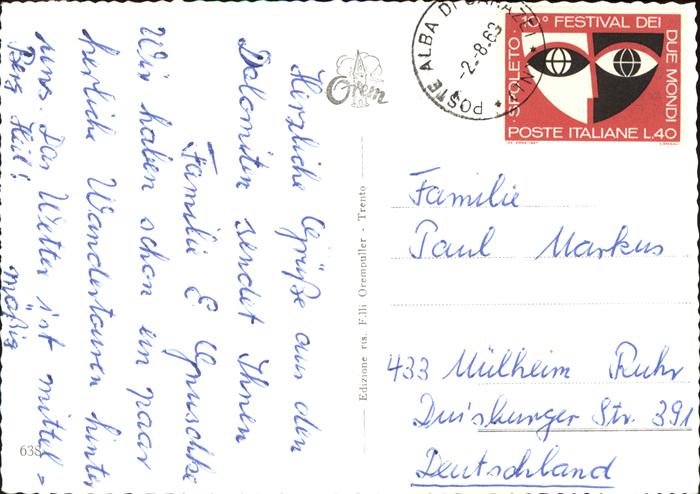 Herzliche Grüße aus den
Dolomiten sendet Ihnen
Familie E Gpuschke
Wir haben schon ein paar
herliche Wandertouren hinter
uns. Das Wetter ist mittel=
mäßig
Berg Heil!
638
Orem
Edizione ris. F.lli Orempuller - Trento
POSTE ALBA DI CANAZEI * TN *
-2-8.68
SPOLETO · 10° FESTIVAL DEI DUE MONDI
POSTE ITALIANE L.40
Familie
Paul Markus
433 Mülheim Ruhr
Duisburger Str. 391
Deutschland